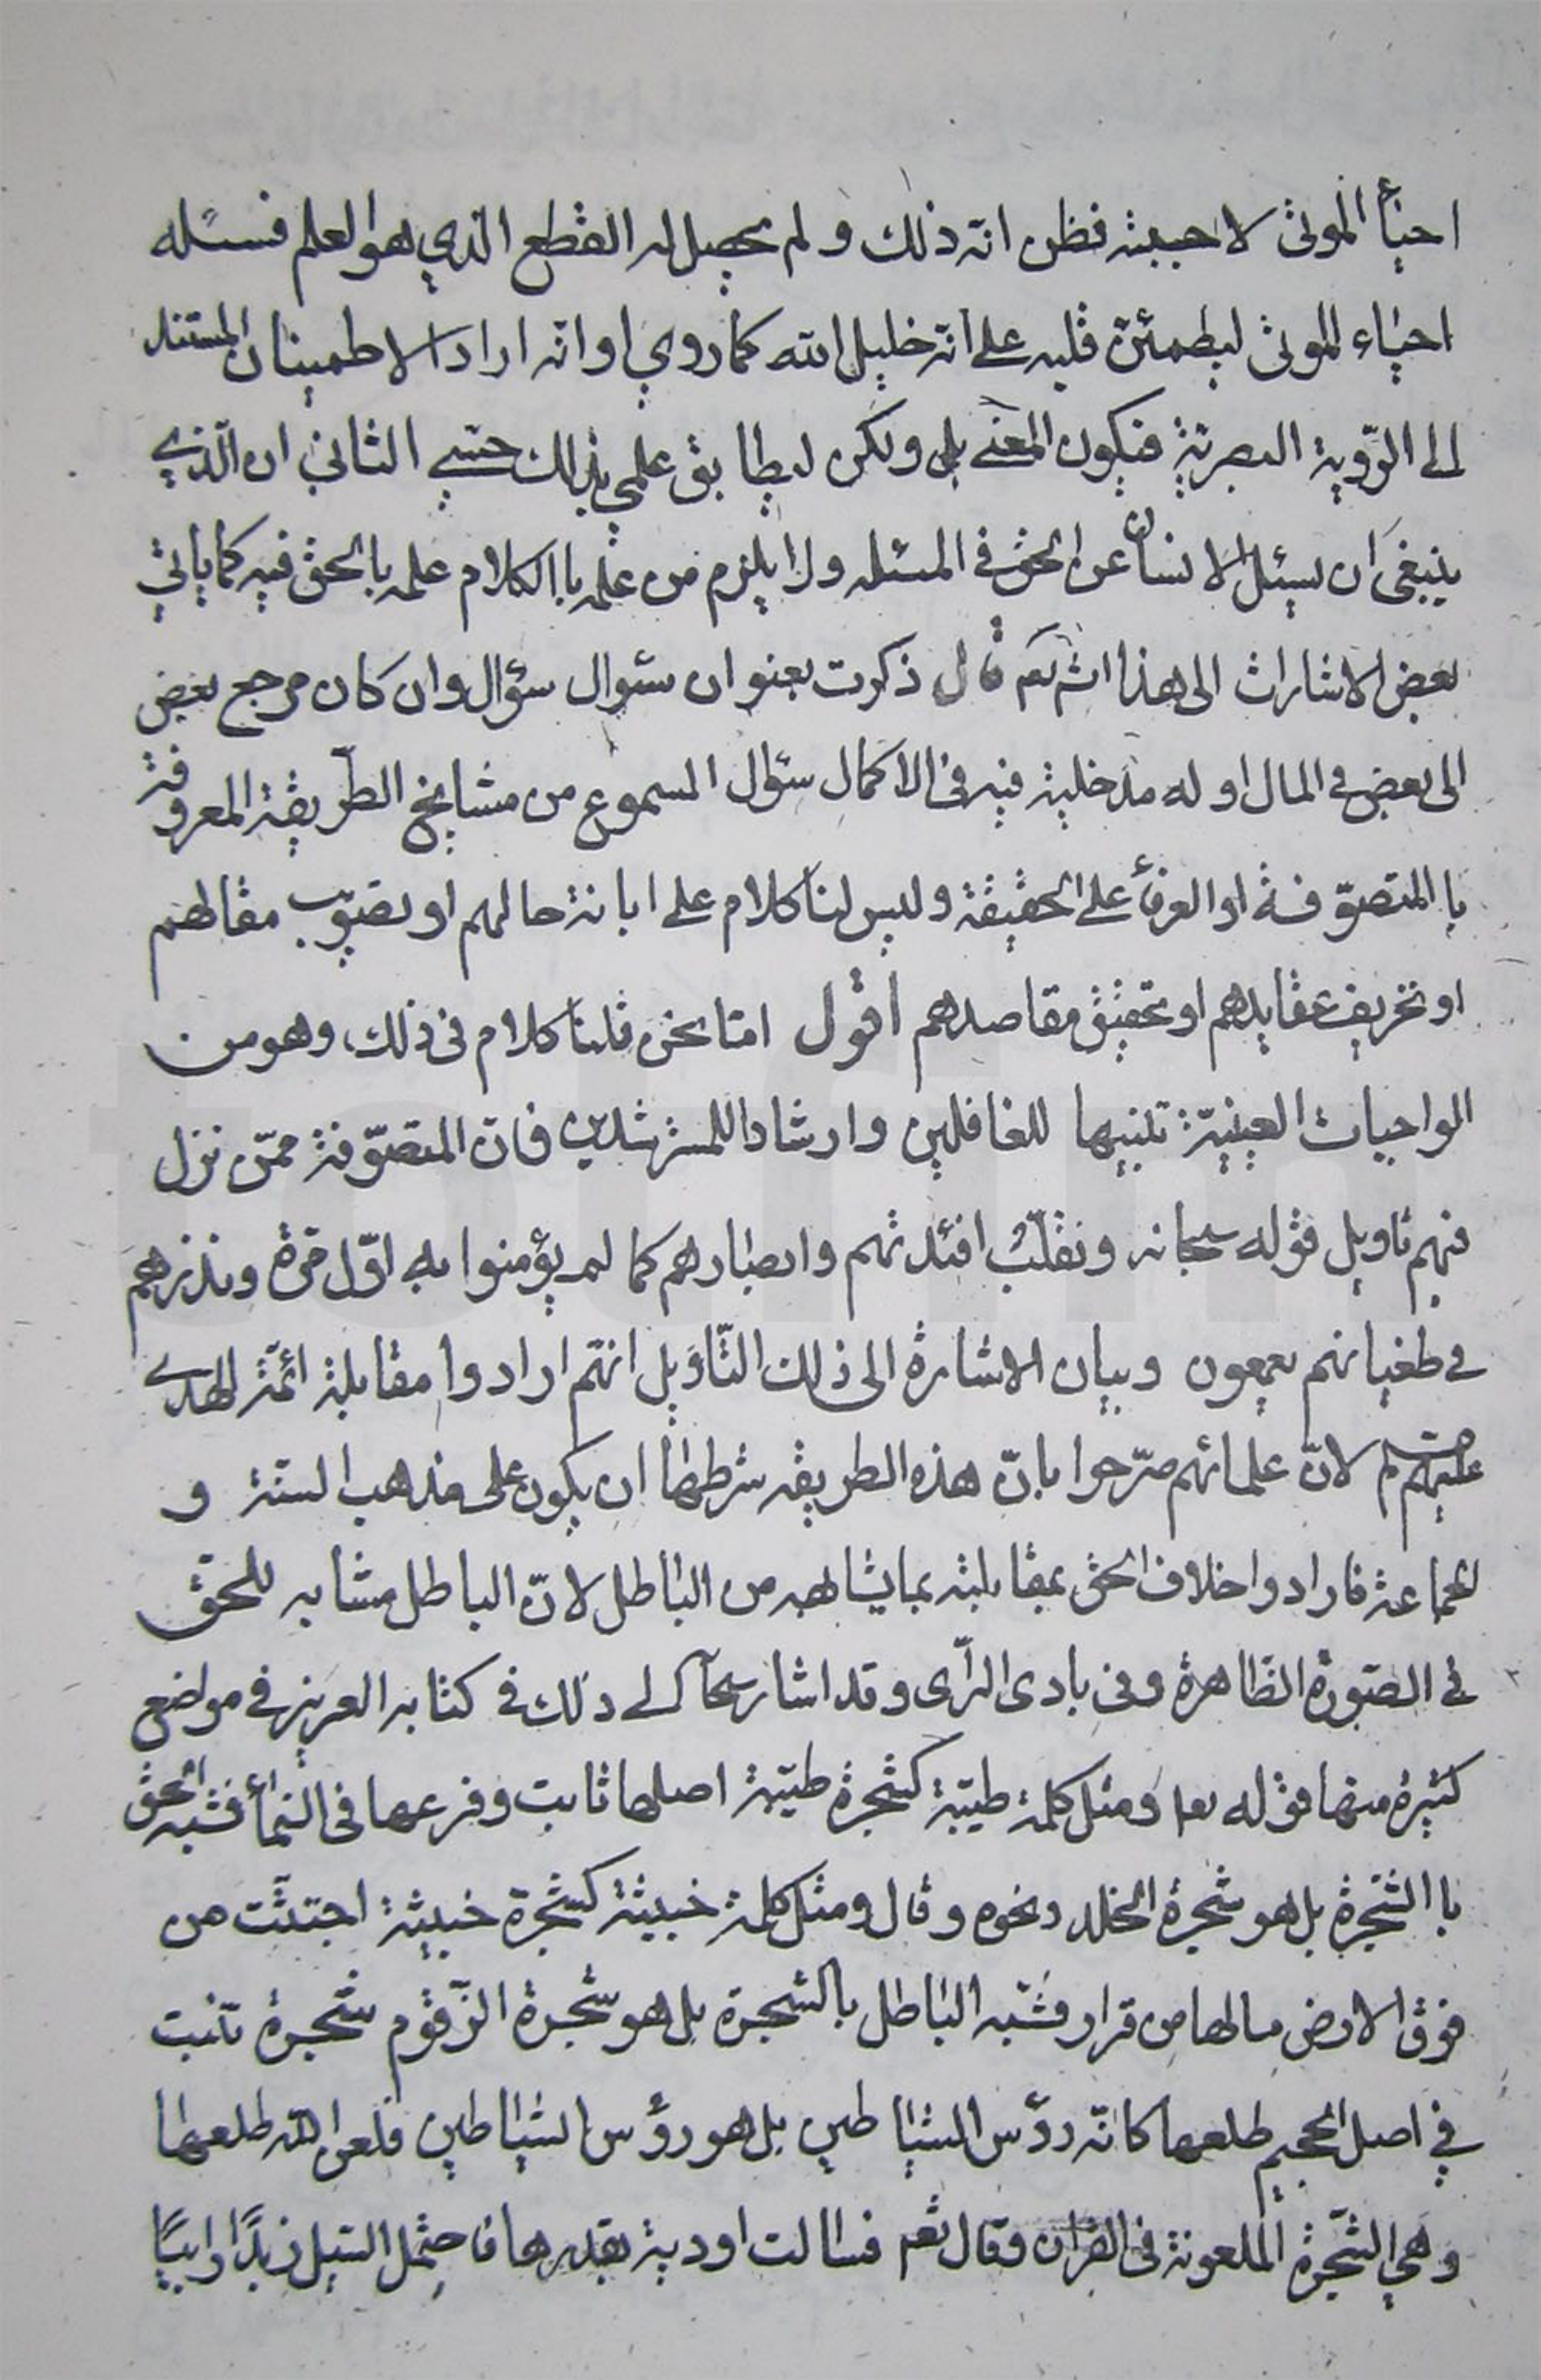 احيأ الموتى لاجبيته فظن انه ذلك و لم يحصل له القطع الذي هو العلم فسئله
احياء الموتى ليطمئن قلبه على انه خليل الله كما روي او انه اراد الاطمينان المستند
الى الرّؤية البصريّة فيكون المعنى بلى ولكن ليطابق علمي بذلك حسّي الثاني ان الّذي
ينبغى ان يسئل الانسان عن الحق في المسئله ولا يلزم من علمه با الكلام علمه بالحق فيه كما ياتي
بعض الاشارات الى هذا انشٓ تعٓ قال ذكرت بعنوان سئوال سؤال وان كان مرجع بعض
الى بعض في المال او له مدخلية فيه فى الاكمال سئوال المسموع من مشايخ الطّريقة المعروفة
با المتصوّفة او العرفأ على الحقيقة وليس لنا كلام على ابانة حالهم او تصويب مقالهم
او تخريف عقايدهم او تحقيق مقاصدهم اقول امّا نحن فلنا كلام فى ذلك، وهو من
الواجبات العينيّة تنبيها للغافلين وارشادا للمسترشدين فانّ المتصوّفة ممّن نزل
فيهم تاويل قوله سبحانه ونقلّب افئدتهم وابصارهم كما لم يؤمنوا به اوّل مرة ونذرهم
في طغيانهم يعمهون وبيان الاشارة الى ذلك التّاويل انّهم ارادوا مقابلة ائمّة الهدى
عليهم لانّ علمائهم صرّحوا بانّ هذه الطريقه شرطها ان يكون على مذهب السنّة و
الجماعة فارادوا خلاف الحق بمقابلته بما يشابهه من الباطل لانّ الباطل مشابه للحق
في الصّورة الظّاهرة وفى بادى الرّأى وقد اشار سبحآ الى ذلك في كتابه العزيز في مواضع
كثيرة منها قوله تعا ومثل كلمة طيّبة كشجرة طيّبة اصلها ثابت وفرعها فى السّمأ فشبه الحق
با الشّجرة بل هو شجرة الخلد ونحوه وقال ومثل كلمة خبيثة كشجرة خبيثة اجتثّت من
فوق الارض مالها من قرار فشبّه الباطل بالشجرة بل هو شجرة الزّقوم شجرة تنبت
في اصل الجحيم طلعها كانّه روّس الشياطين بل هو رؤس الشياطين فلعن الله طلعها
وهي الشّجرة الملعونة فى القران وقال تعم فسالت اودية بقدرها فاحتمل السّيل زبدًا رابيًا